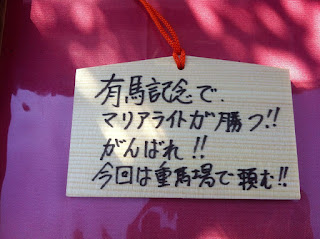 有馬記念で.
マリアライトが勝つ!!
がんばれ!!
今回は重馬場で頼む!!